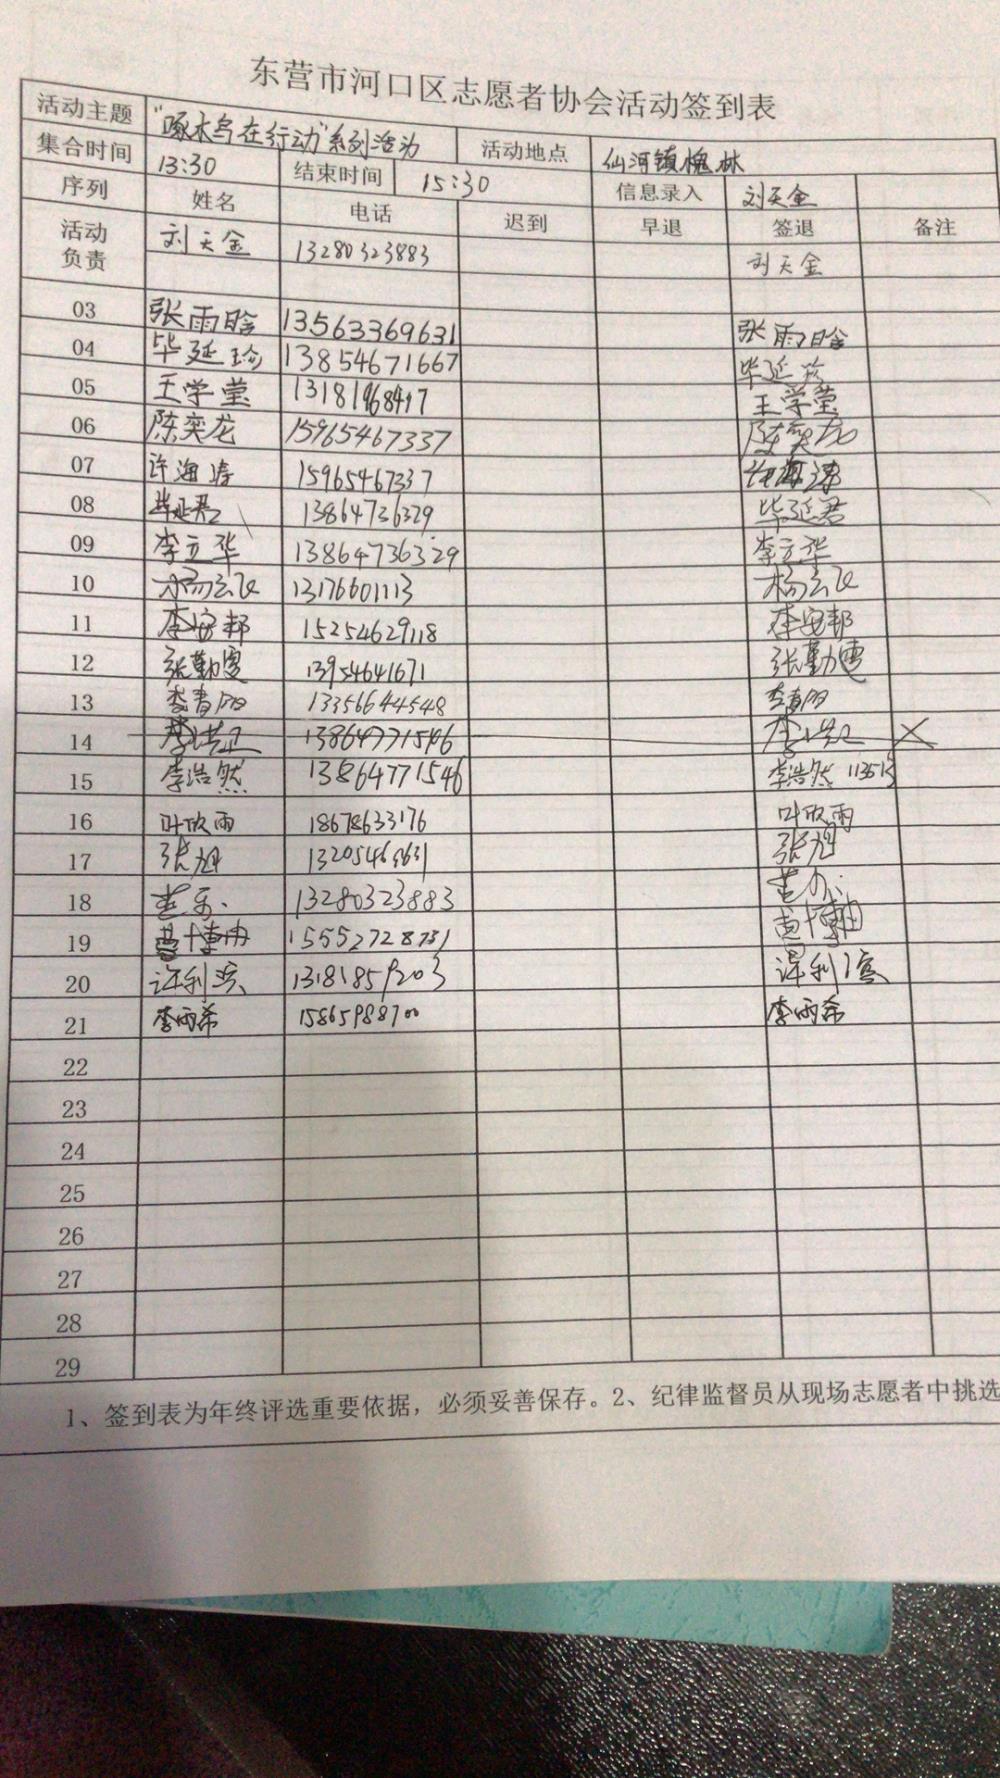 东营市河口区志愿者协会活动签到表
活动主题 "啄木鸟在行动"系列活动 活动地点 仙河镇槐林
集合时间 13:30 结束时间 15:30 信息录入 刘天金
序列 姓名 电话 迟到 早退 签退 备注
活动负责 刘天金 13280323883 刘天金
03 张雨晗 13563369631 张雨晗
04 毕延珍 13854671667 毕延珍
05 王学莹 王学莹
06 陈奕龙 15965467337 陈奕龙
07 许海涛 15965467337 许海涛
08 毕延君 13864736329 毕延君
09 李立华 13864736329 李立华
10 杨云飞 13176601113 杨云飞
11 李安邦 15254629118 李安邦
12 张勤 13954641671 张勤
13 13356644548
14 李洪卫 13864771546 李洪卫
15 李浩然 13864771546 李浩然
16 叶欣雨 18678633176 叶欣雨
17 张旭 张旭
18 13280323883
19 15552728731
20 13181859203
21 李雨希 15865988700 李雨希
22
23
24
25
26
27
28
29
1、签到表为年终评选重要依据，必须妥善保存。2、纪律监督员从现场志愿者中挑选